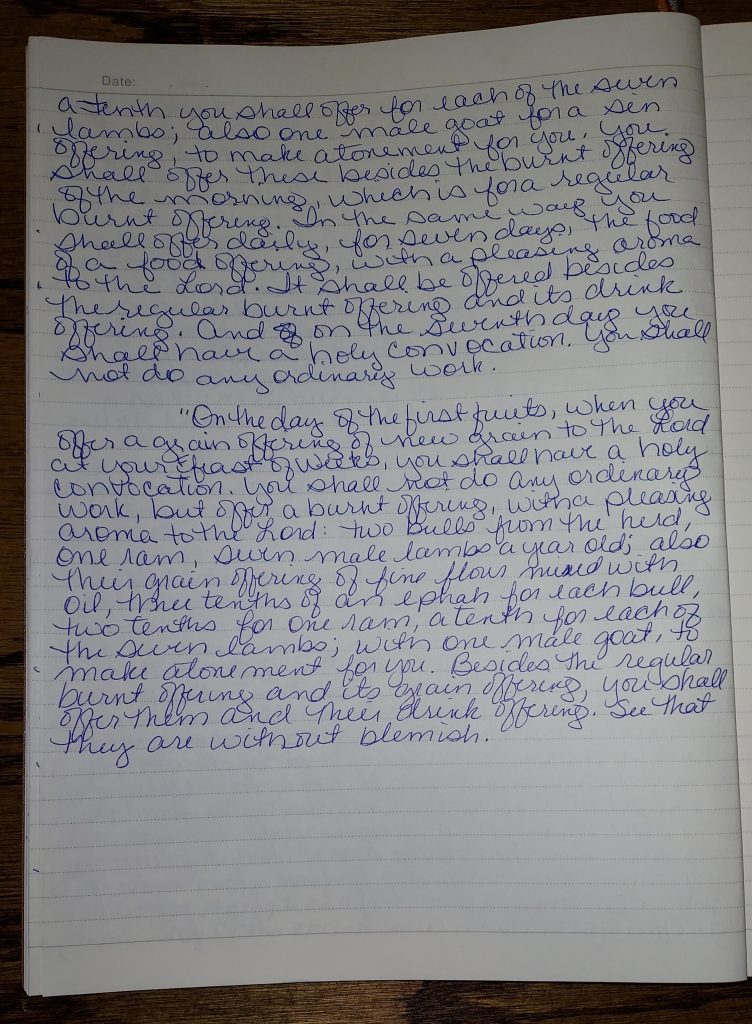 Date:
a tenth you shall offer for each of the seven
lambs; also one male goat for a sin
offering, to make atonement for you. You
shall offer these besides the burnt offering
of the morning, which is for a regular
burnt offering. In the same way you
shall offer daily, for seven days, the food
of a food offering, with a pleasing aroma
to the Lord. It shall be offered besides
the regular burnt offering and its drink
offering. And on the seventh day you
shall have a holy convocation. You shall
not do any ordinary work.
"On the day of the first fruits, when you
offer a grain offering of new grain to the Lord
at your Feast of Weeks, you shall have a holy
convocation. You shall not do any ordinary
work, but offer a burnt offering, with a pleasing
aroma to the Lord: two bulls from the herd,
one ram, seven male lambs a year old; also
their grain offering of fine flour mixed with
oil, three tenths of an ephah for each bull,
two tenths for one ram, a tenth for each of
the seven lambs; with one male goat, to
make atonement for you. Besides the regular
burnt offering and its grain offering, you shall
offer them and their drink offering. See that
they are without blemish.